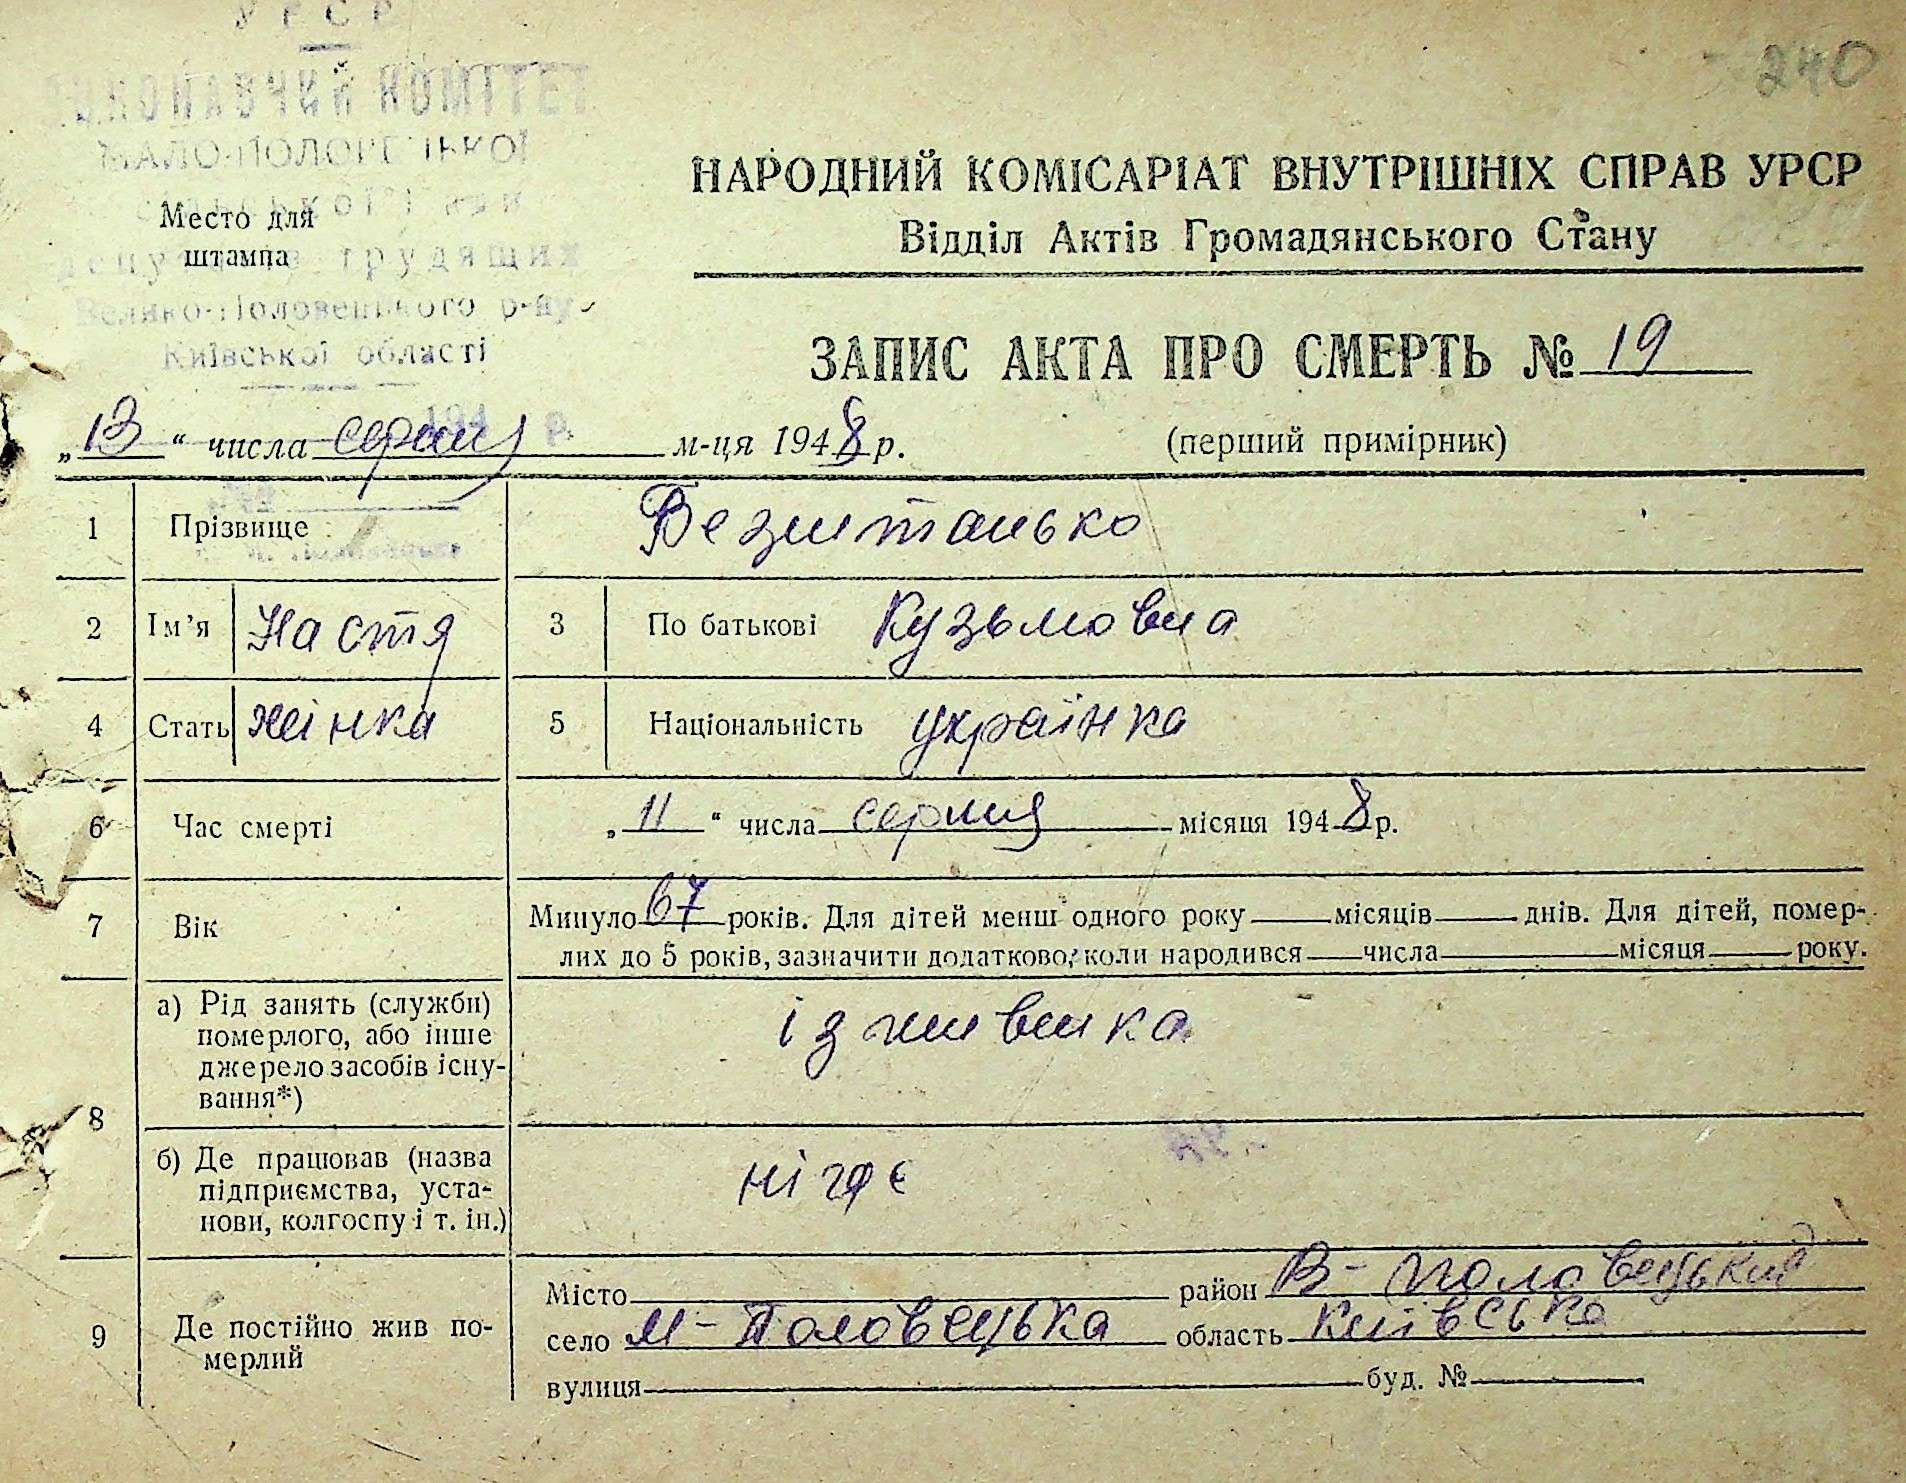 УРСР
ВИКОНАВЧИЙ КОМІТЕТ
МАЛО-ПОЛОВЕЦЬКОЇ
сільської ради
депутатів трудящих
Велико-Половецького р-ну
Київської області
Место для
штампа
240
НАРОДНИЙ КОМІСАРІАТ ВНУТРІШНІХ СПРАВ УРСР
Відділ Актів Громадянського Стану
ЗАПИС АКТА ПРО СМЕРТЬ № 19
„13“ числа серпня м-ця 1948 р.
(перший примірник)
1 Прізвище Безштанько
2 Ім'я Настя 3 По батькові Кузьмовна
4 Стать жінка 5 Національність українка
6 Час смерті „11“ числа серпня місяця 1948 р.
7 Вік Минуло 67 років. Для дітей менш одного року місяців днів. Для дітей, помер-
лих до 5 років, зазначити додатково, коли народився числа місяця року.
8 а) Рід занять (служби) померлого, або інше джерело засобів існу-вання*) іживвика
б) Де працював (назва підприємства, уста-нови, колгоспу і т. ін.) нігде
9 Де постійно жив по-мерлий
Місто район В-Половецький
село М-Половецька область Київська
вулиця буд. №